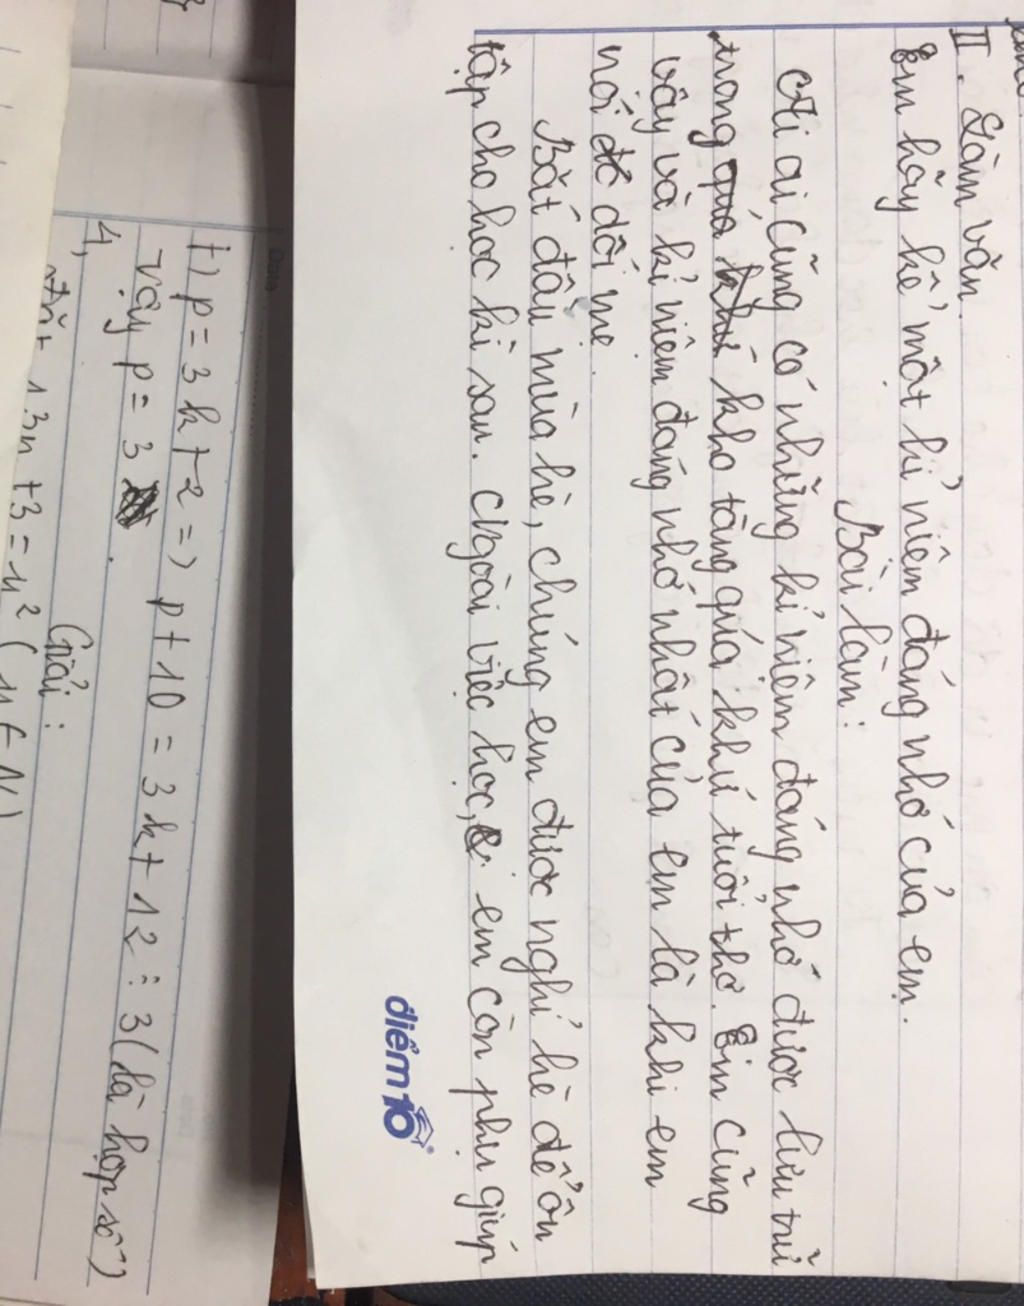 II. Làm văn.
Em hãy kể một kỉ niệm đáng nhớ của em.
Bài làm:
Ai ai cũng có những kỉ niệm đáng nhớ được lưu trữ
trong quá kho tàng quá khứ tuổi thơ. Em cũng
vậy và kỉ niệm đáng nhớ nhất của em là khi em
nói dối mẹ.
Bắt đầu mùa hè, chúng em được nghỉ hè để ôn
tập cho học kì sau. Ngoài việc học, em còn phụ giúp
điểm10
Date
+) p = 3k+2 => p+10 = 3k+12 ⋮ 3 (là hợp số)
Vậy p = 3
4,
Giải:
Đặt 13n +3 = y² (y ∈ N)